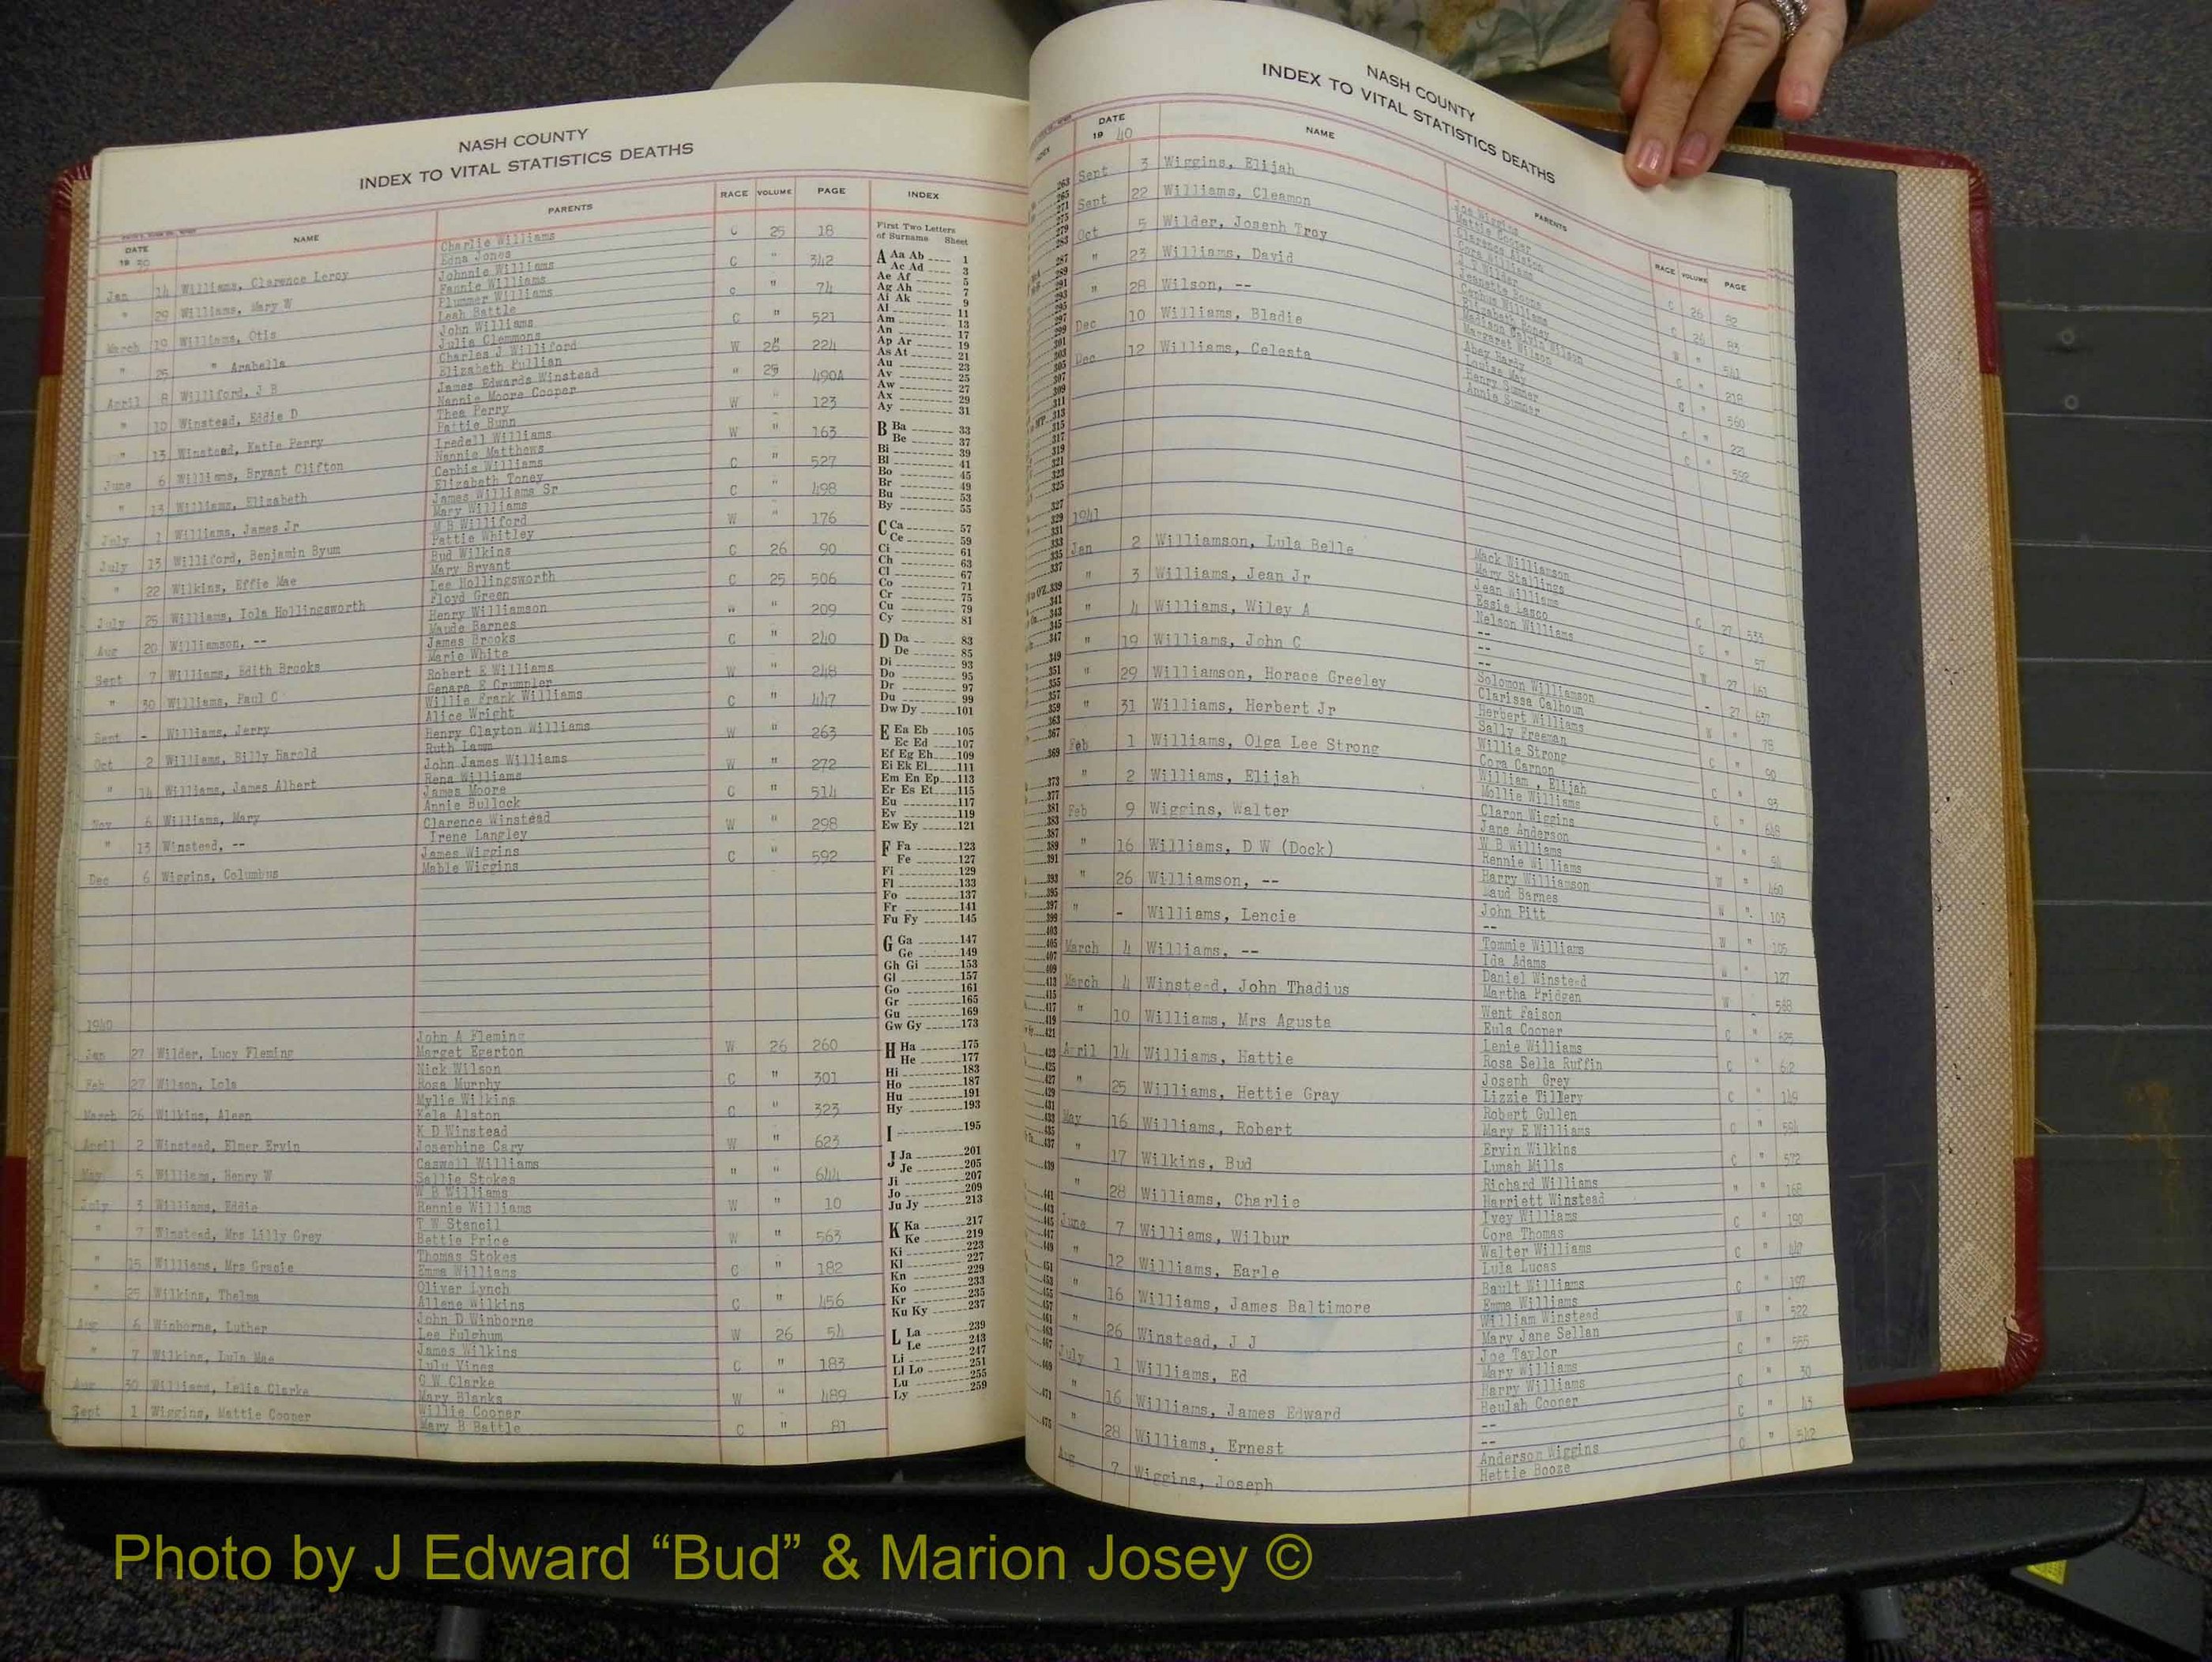 NASH COUNTY
INDEX TO VITAL STATISTICS DEATHS
DATE NAME PARENTS RACE VOLUME PAGE INDEX
Jan 14 Williams, Clarence Leroy Charlie Williams C 25 18
Edna Jones
" 29 Williams, Mary W Johnnie Williams C " 342
Fannie Williams
March 19 Williams, Otis Plummer Williams C " 74
Leah Battle
" 25 " Arabella John Williams C " 521
Julia Clemmons
April 8 Williford, J B Charles J Williford W 26 224
Elizabeth Pullian
" 10 Winstead, Eddie D James Edwards Winstead " 25 490A
Nannie Moore Cooper
" 13 Winstead, Katie Perry Thea Perry W " 123
Pattie Bunn
June 6 Williams, Bryant Clifton Iredell Williams W " 163
Nannie Matthews
" 13 Williams, Elizabeth Cephis Williams C " 527
Elizabeth Toney
July 1 Williams, James Jr James Williams Sr C " 498
Mary Williams
July 13 Williford, Benjamin Byum M B Williford W " 176
Pattie Whitley
" 22 Wilkins, Effie Mae Bud Wilkins C 26 90
Mary Bryant
July 25 Williams, Iola Hollingsworth Lee Hollingsworth C 25 506
Floyd Green
Aug 20 Williamson, -- Henry Williamson W " 209
Maude Barnes
Sept 7 Williams, Edith Brooks James Brooks C " 240
Marie White
" 30 Williams, Paul C Robert E Williams W " 248
Genara E Crumpler
Sept - Williams, Jerry Willie Frank Williams C " 447
Alice Wright
Oct 2 Williams, Billy Harold Henry Clayton Williams W " 263
Ruth Lamm
" 14 Williams, James Albert John James Williams W " 272
Rena Williams
Nov 6 Williams, Mary James Moore C " 514
Annie Bullock
" 13 Winstead, -- Clarence Winstead W " 298
Irene Langley
Dec 6 Wiggins, Columbus James Wiggins C " 592
Mable Wiggins
1940
Jan 27 Wilder, Lucy Fleming John A Fleming W 26 260
Marget Egerton
Feb 27 Wilson, Lola Nick Wilson C " 301
Rosa Murphy
March 26 Wilkins, Aleen Mylie Wilkins C " 323
Kela Alston
April 2 Winstead, Elmer Ervin K D Winstead W " 623
Josephine Gary
May 5 Williams, Henry W Caswell Williams " " 644
Sallie Stokes
July 3 Williams, Eddie W B Williams W " 10
Rennie Williams
" 7 Winstead, Mrs Lilly Grey T W Stancil W " 563
Bettie Price
" 15 Williams, Mrs Gracie Thomas Stokes C " 182
Emma Williams
" 25 Wilkins, Thelma Oliver Lynch C " 456
Allene Wilkins
Aug 6 Winborne, Luther John D Winborne W 26 54
Lee Fulghum
" 7 Wilkins, Lula Mae James Wilkins C " 183
Lulu Vines
Aug 30 Williams, Lelia Clarke G W Clarke W " 489
Mary Blanks
Sept 1 Wiggins, Mattie Cooper Willie Cooper C " 81
Mary B Battle
First Two Letters
of Surname Sheet
A Aa Ab 1
Ac Ad 3
Ae Af 5
Ag Ah 7
Ai Ak 9
Al 11
Am 13
An 17
Ap Ar 19
As At 21
Au 23
Av 25
Aw 27
Ax 29
Ay 31
B Ba 33
Be 37
Bi 39
Bl 41
Bo 45
Br 49
Bu 53
By 55
C Ca 57
Ce 59
Ci 61
Ch 63
Cl 67
Co 71
Cr 75
Cu 79
Cy 81
D Da 83
De 85
Di 93
Do 95
Dr 97
Du 99
Dw Dy 101
E Ea Eb 105
Ec Ed 107
Ef Eg Eh 109
Ei Ek El 111
Em En Ep 113
Er Es Et 115
Eu 117
Ev 119
Ew Ey 121
F Fa 123
Fe 127
Fi 129
Fl 133
Fo 137
Fr 141
Fu Fy 145
G Ga 147
Ge 149
Gh Gi 153
Gl 157
Go 161
Gr 165
Gu 169
Gw Gy 173
H Ha 175
He 177
Hi 183
Ho 187
Hu 191
Hy 193
I 195
J Ja 201
Je 205
Ji 207
Jo 209
Ju Jy 213
K Ka 217
Ke 219
Ki 223
Kl 227
Kn 229
Ko 233
Kr 235
Ku Ky 237
L La 239
Le 243
Li 247
Ll Lo 251
Lu 255
Ly 259
NASH COUNTY
INDEX TO VITAL STATISTICS DEATHS
DATE NAME PARENTS RACE VOLUME PAGE
19 40
Sept 3 Wiggins, Elijah Joe Wiggins C 26 82
Mattie Cooper
Sept 22 Williams, Cleamon Clarence Alston C 26 83
Cora Williams
Oct 5 Wilder, Joseph Troy J T Wilder W " 541
Jeanette Boone
" 23 Williams, David Cephus Williams C " 218
Elizabeth
" 28 Wilson, -- Madison Calvin Wilson C " 560
Margaret Wilson
Dec 10 Williams, Bladie Abex Hardy C " 221
Louise May
Dec 12 Williams, Celesta Henry Sumner C " 592
Annie Sumner
1941
Jan 2 Williamson, Lula Belle Mack Williamson C 27 533
Mary Stallings
" 3 Williams, Jean Jr Jean Williams C " 57
Essie Lasco
" 4 Williams, Wiley A Nelson Williams W 27 461
--
" 19 Williams, John C -- - 27 637
--
" 29 Williamson, Horace Greeley Solomon Williamson W " 78
Clarissa Calhoun
" 31 Williams, Herbert Jr Herbert Williams C " 90
Sally Freeman
Feb 1 Williams, Olga Lee Strong Willie Strong C " 93
Cora Carnon
" 2 Williams, Elijah William , Elijah C " 648
Mollie Williams
Feb 9 Wiggins, Walter Claron Wiggins " " 94
Jane Anderson
" 16 Williams, D W (Dock) W B Williams W " 460
Rennie Williams
" 26 Williamson, -- Harry Williamson W " 103
Maud Barnes
" - Williams, Lencie John Pitt W " 105
--
March 4 Williams, -- Tommie Williams " 127
Ida Adams
March 4 Winstead, John Thadius Daniel Winstead W " 588
Martha Pridgen
" 10 Williams, Mrs Agusta Went Faison C "
Eula Cooper
April 14 Williams, Hattie Lenie Williams C " 612
Rosa Sella Ruffin
" 25 Williams, Hettie Gray Joseph Grey C " 149
Lizzie Tillery
May 16 Williams, Robert Robert Gullen C " 594
Mary E Williams
" 17 Wilkins, Bud Ervin Wilkins C " 572
Lunah Mills
" 28 Williams, Charlie Richard Williams " " 168
Harriett Winstead
June 7 Williams, Wilbur Ivey Williams C " 190
Cora Thomas
" 12 Williams, Earle Walter Williams C " 447
Lula Lucas
" 16 Williams, James Baltimore Bault Williams C " 197
Emma Williams
" 26 Winstead, J J William Winstead W " 522
Mary Jane Sellan
July 1 Williams, Ed Joe Taylor C " 555
Mary Williams
" 16 Williams, James Edward Harry Williams C " 30
Beulah Cooper
" 28 Williams, Ernest -- C " 43
--
Aug 7 Wiggins, Joseph Anderson Wiggins C " 542
Hettie Booze
Photo by J Edward “Bud” & Marion Josey ©